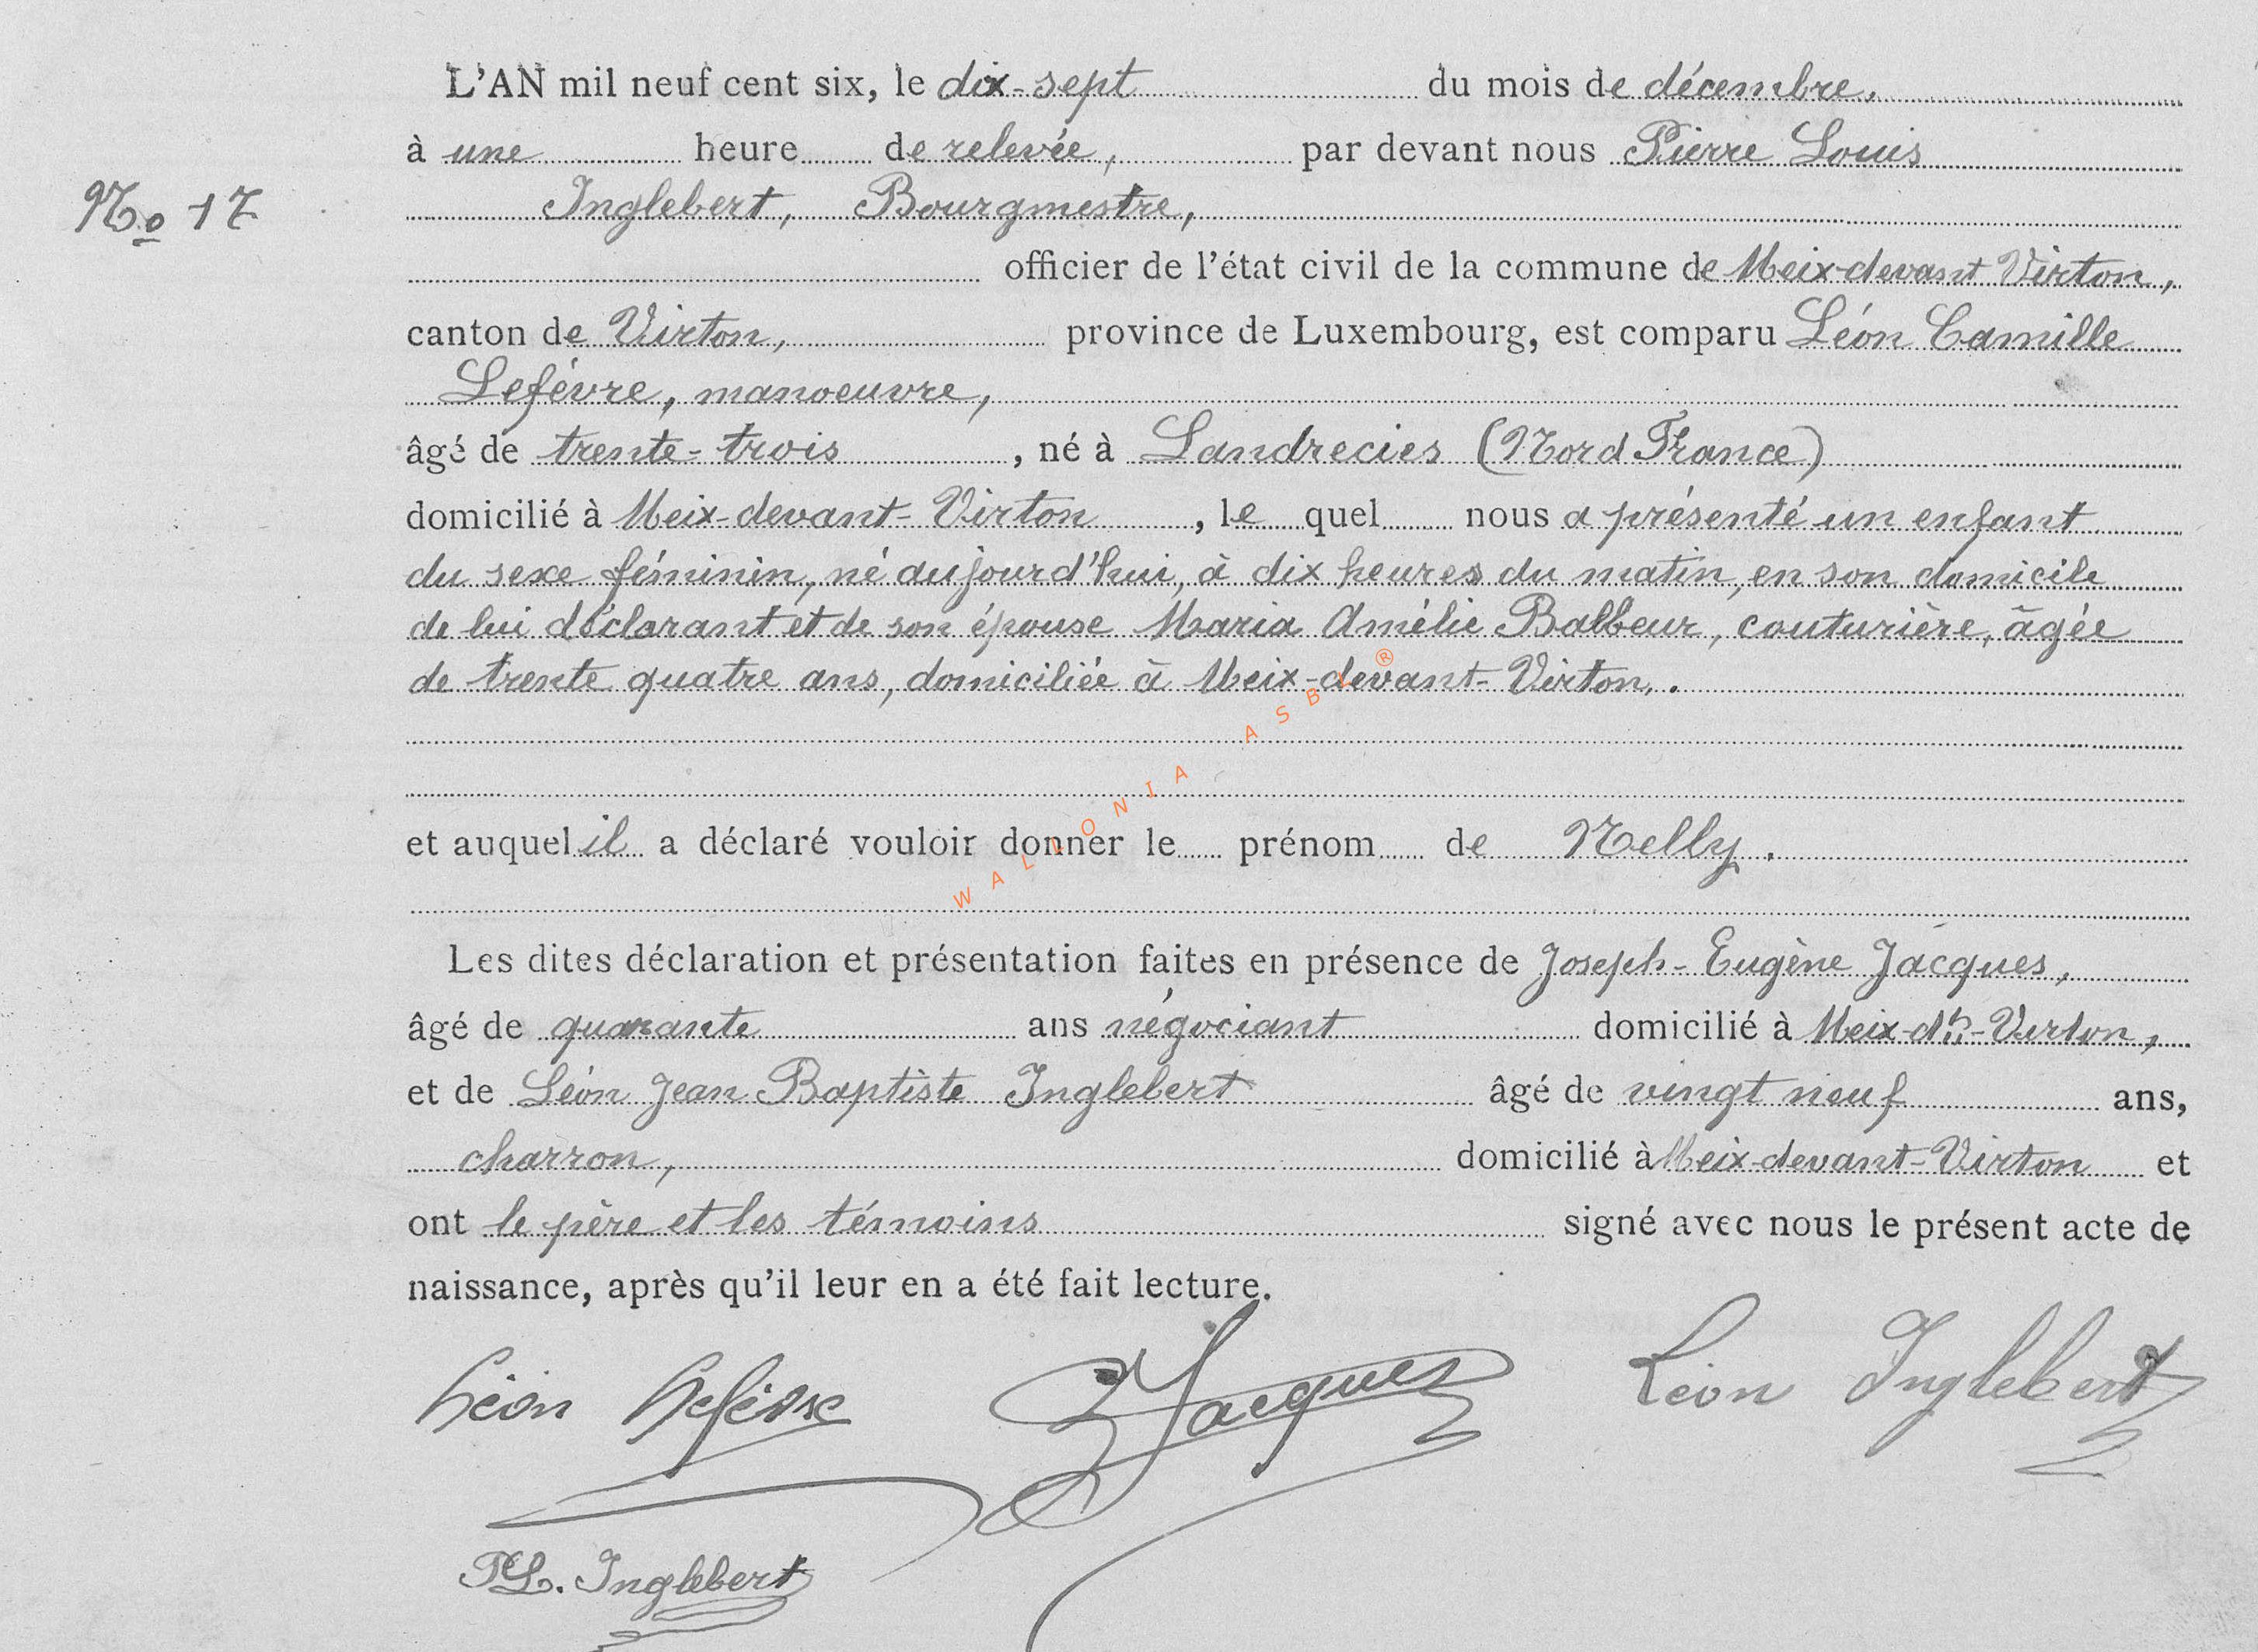 L'AN mil neuf cent six, le dix-sept du mois de décembre,
à une heure de relevée, par devant nous Pierre Louis
No 17
Inglebert, Bourgmestre,
officier de l'état civil de la commune de Meix-devant Virton,
canton de Virton, province de Luxembourg, est comparu Léon Camille
Lefévre, manoeuvre,
âgé de trente-trois, né à Landrecies (Nord France)
domicilié à Meix-devant-Virton, le quel nous a présenté un enfant
du sexe féminin, né aujourd'hui, à dix heures du matin, en son domicile
de lui déclarant et de son épouse Maria Amélie Balbeur, couturière, âgée
de trente quatre ans, domiciliée à Meix-devant-Virton.
WALLONIA ASBL ®
et auquel il a déclaré vouloir donner le prénom de Nelly.
Les dites déclaration et présentation faites en présence de Joseph-Eugène Jacques,
âgé de quarante ans négociant domicilié à Meix-dt-Virton,
et de Léon Jean Baptiste Inglebert âgé de vingt neuf ans,
charron, domicilié à Meix-devant-Virton et
ont le père et les témoins signé avec nous le présent acte de
naissance, après qu'il leur en a été fait lecture.
Léon Lefèvre Jacques Léon Inglebert
PL. Inglebert